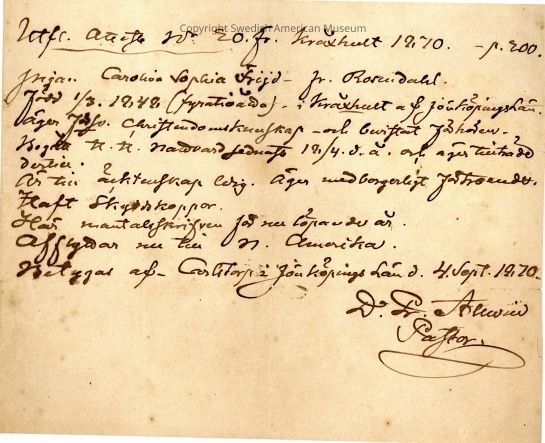 Copyright Swedish American Museum
Utfl. Attest No 20. fr. Kråxhult 1870. – p. 200.
Pigan Carolina Sophia Frijd – fr. Rosendahl.
Född 1/3. 1848 (fyratioåtta) – i Kråxhult af Jönköpings Län.
Äger Christendomskunskap – och bevistat Förhören.
Begått H. H. Nattvard sednast 18/4. d. å. och äger tillträde
dertill.
Är till äktenskap ledig. Äger medborgerligt förtroende.
Haft Skyddskoppor.
Här mantalsskrifven för nu löpande år.
Afflyttar nu till N. Amerika.
Betygas af – i Jönköpings Län d. 4 Sept. 1870.
D. Fr.
Pastor.